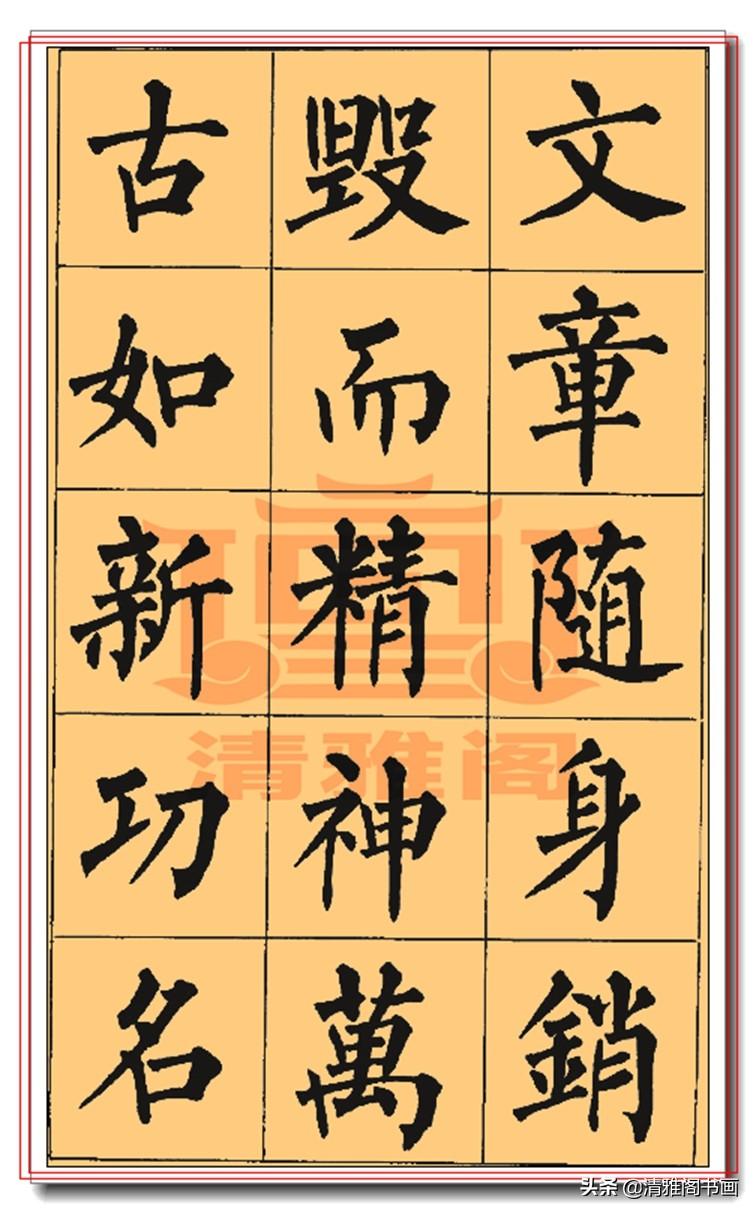 文章随身銷
毀而精神萬
古如新功名
清雅阁
头条 @清雅阁书画